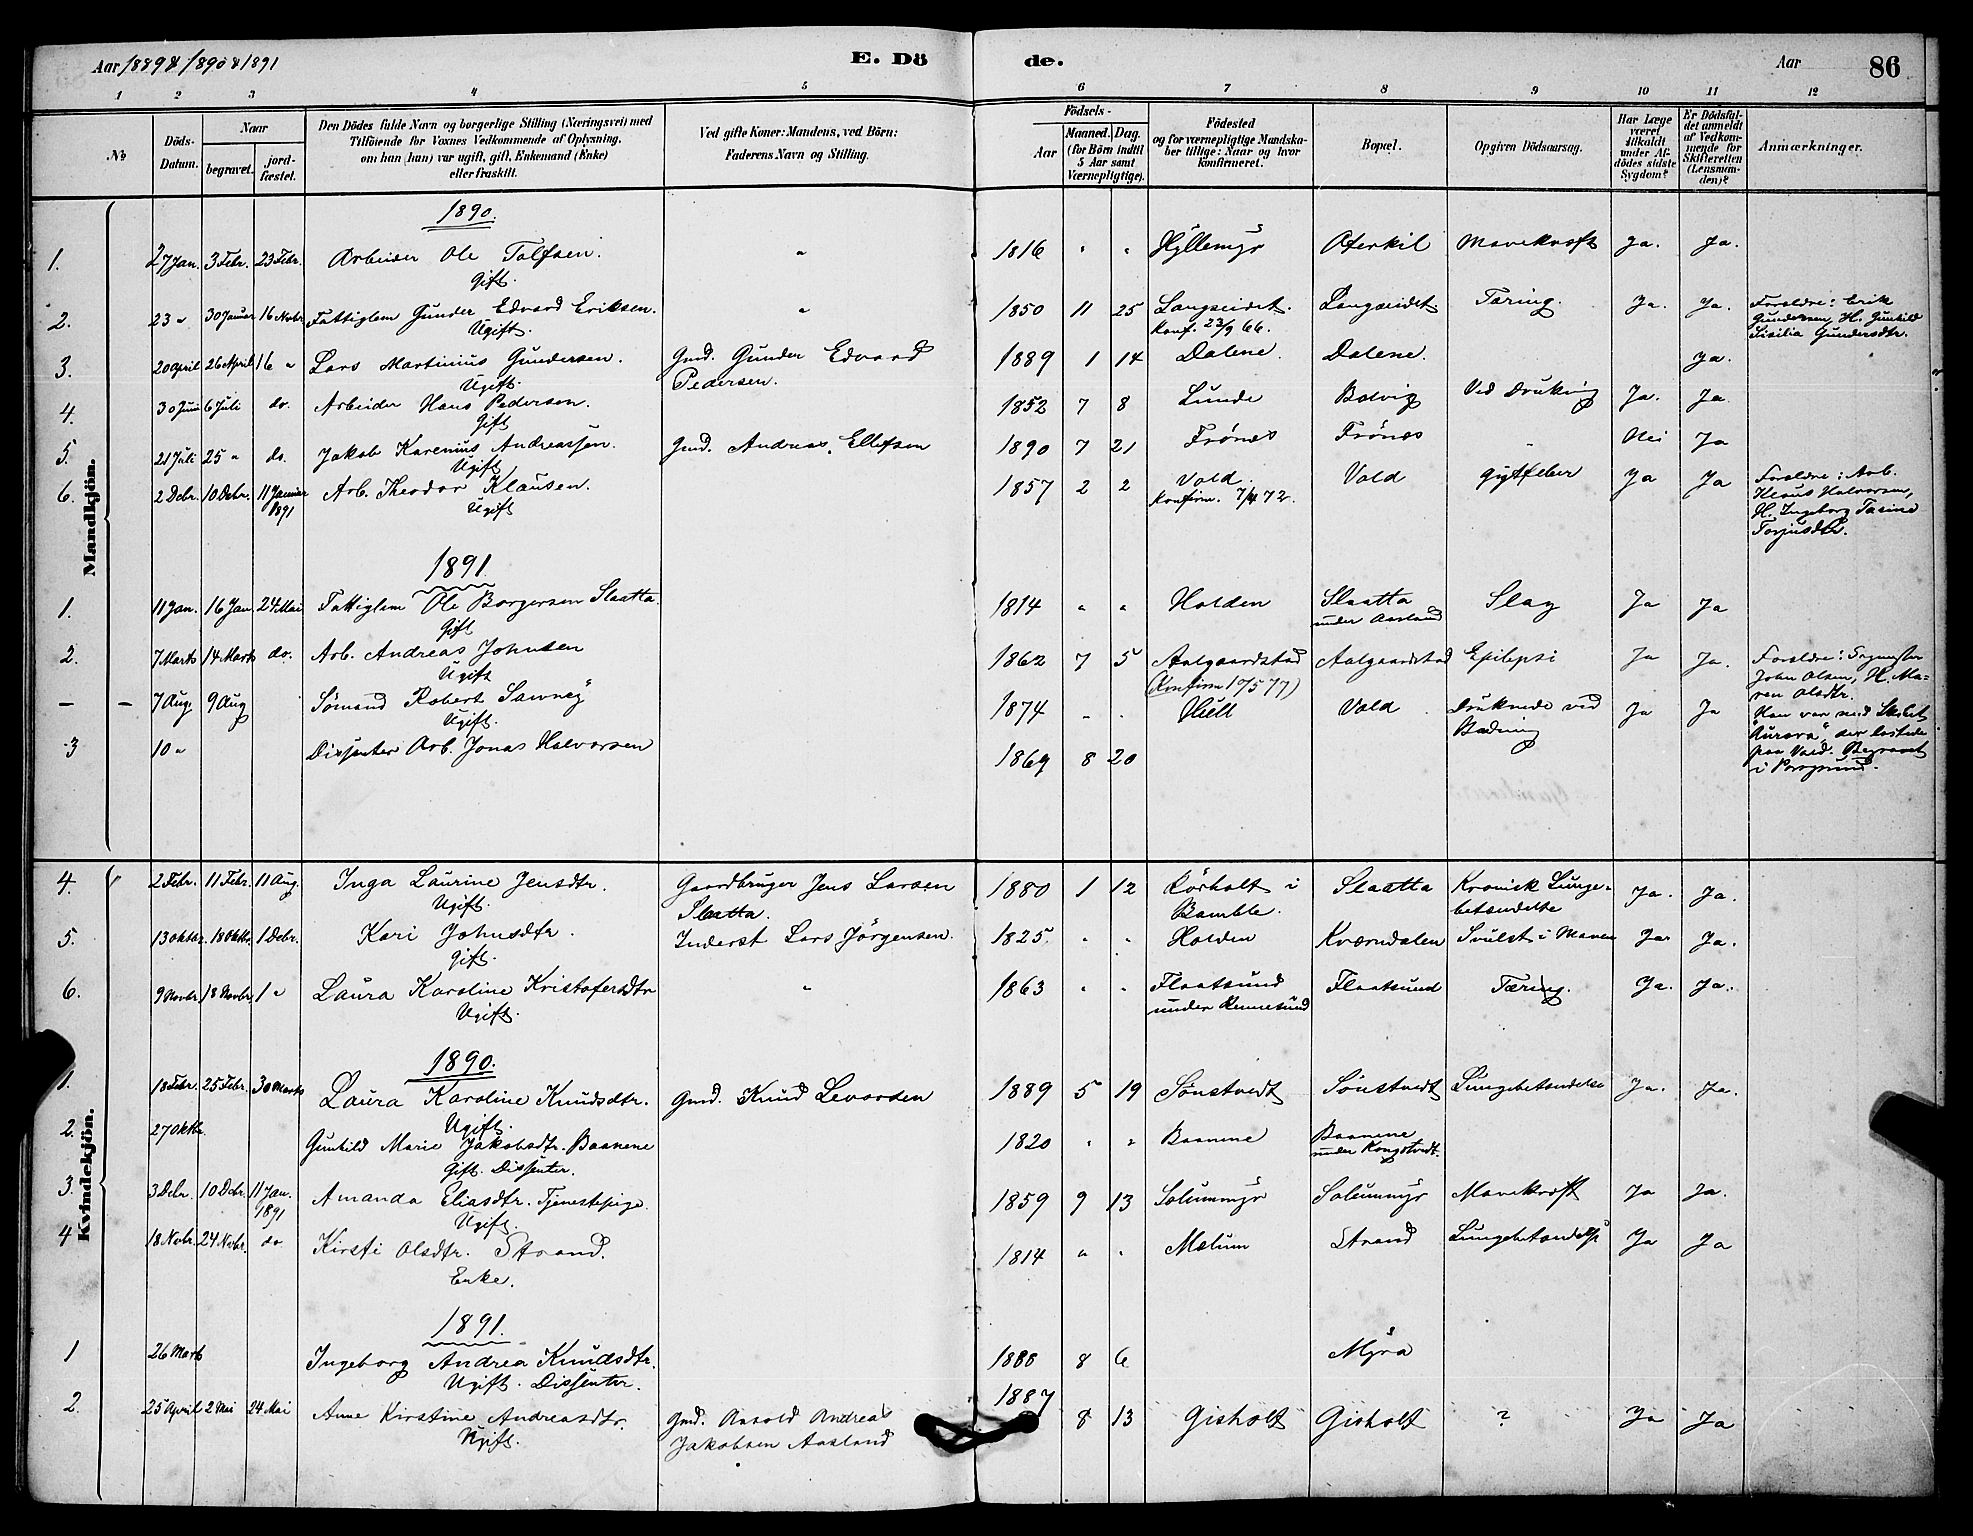 Aar 1889 & 1890 & 1891
E. Dö de.
Aar 86
1 2 3 4 5 6 7 8 9 10 11 12
No
Döds-Datum.
Naar
begravet.
jord-fæstet.
Den Dödes fulde Navn og borgerlige Stilling (Næringsvei) med
Tilföiende for Voxnes Vedkommende af Oplysning,
om han (hun) var ugift, gift, Enkemand (Enke)
eller fraskilt.
Ved gifte Koner: Mandens, ved Börn:
Faderens Navn og Stilling.
Födsels-
Aar
Maaned. Dag.
(for Börn indtil
5 Aar samt
Værnepligtige).
Födested
og for værnepligtige Mandska-
ber tillige: Naar og hvor
konfirmeret.
Bopæl.
Opgiven Dödsaarsag.
Har Læge
været
tilkaldt
under Af-
dödes sidste
Sygdom?
Er Dödsfal-
det anmeldt
af Vedkom-
mende for
Skifteretten
(Lensman-
den)?
Anmærkninger.
Mandkjön.
1890.
1. 27 Jan. 3 Febr. 23 Febr. Arbeider Ole Tolfsen. " 1816 " " Hyllemyr Oterkil Mavekræft Ja. Ja.
Gift.
2. 23 " 30 Januar 16 Novbr Fattiglem Gunder Edvard Eriksen. " 1850 11 25 Langseidet. Langseidet. Tæring. Ja. Ja. Forældre: Erik
Ugift. Konf. 23/9 66. Gundersen, H. Gunhild
Sisilia Gundersdtr.
3. 20 April 26 April 16 " Lars Martinius Gundersen. Gmd. Gunder Edvard 1889 1 14 Dalene. Dalene. Ja.
Ugift. Pedersen.
4. 30 Juni 6 Juli do. Arbeider Hans Pedersen. 1852 7 8 Lunde Bolvig Ved Drukning Ja. Ja.
Gift
5. 21 Juli 25 " do. Jakob Karenius Andreassen. Gmd. Andreas Ellefsen 1890 7 21 Frönæs Frönæs - Nei Ja
Ugift
6. 2 Debr. 10 Debr. 11 Januar 1891 Arb. Theodor Klausen. 1857 2 2 Vold. Vold Gigtfeber Ja Ja Forældre: Arb.
Ugift Konfirm. 7/4 72. Klaus Halvorsen,
H. Ingeborg Tasine
Torjusdtr.
1891.
1. 11 Jan. 16 Jan 24 Mai Fattiglem Ole Borgersen Slaatta. 1814 " " Holden Slaatta Slag Ja Ja
Gift under Aasland
2. 7 Marts 14 Marts do. Arb. Andreas Johnsen 1862 7 5 Aalgaardstad Aalgaardstad Epilepsi Ja Ja. Forældre:
Ugift (Konfirm 10/5 77) John Olsen, H. Ma-
ren Olsdtr.
- - 7 Aug. 9 Aug Sømand Robert Sawney 1874 - - Hull Vold Druknede ved Ja Ja Han var med Skibet
Ugift. Badning "Aurora" der lastede
paa Vold. Begravet
i Porsgrund.
3 10 " Dissenter Arb. Jonas Halvorsen 1869 8 20
4. 2 Febr. 11 Febr. 11 Aug. Inga Laurine Jensdtr. Gaardbruger Jens Larsen 1880 1 12 Rörholt i Slaatta Kronisk Lunge- Ja. Ja.
Ugift. Slaatta. Bamble. betændelse
5. 13 Oktbr. 18 Oktbr. 1 Debr. Kari Johnsdtr. Inderst Lars Jörgensen. 1825. " " Holden Kværndalen Svulst i Maven Ja Ja.
Gift.
6. 9 Novbr. 18 Novbr. 1 " Laura Karoline Kristofersdtr " 1863 " " Flaatsund Flaatsund Tæring. Ja. Ja.
Ugift. under Rennesund
Kvindekjön.
1890.
1. 18 Febr. 25 Febr. 30 Marts Laura Karoline Knudsdtr. Gmd. Knud Levorsen 1889 5 19 Sönstvedt Sönstvedt Lungebetændelse Ja. Ja.
Ugift.
2. 27 Oktbr. Gunhild Marie Jakobsdtr. Baanene 1820 " " Baanene Baanene
Gift. Dissenter. under Kongstvedt.
3. 3 Debr. 10 Debr. 11 Jan. 1891 Amanda Eliasdtr. Tjenestepige. 1859 9 13 Solummyr Solummyr Mavekræft Ja Ja.
Ugift.
4 18 Novbr. 24 Novbr. do Kirsti Olsdtr. Strand. 1814 " " Melum Strand Lungebetændelse Ja Ja
Enke.
1891.
1 26 Marts Ingeborg Andrea Knudsdtr. 1886 8 6 Myra
Ugift. Dissenter.
2. 25 April 2 Mai 24 Mai Anne Kirstine Andreasdtr. Gmd. Anold Andreas 1887 8 13 Gisholt Gisholt ? Ja Ja
Ugift. Jakobsen Aasland